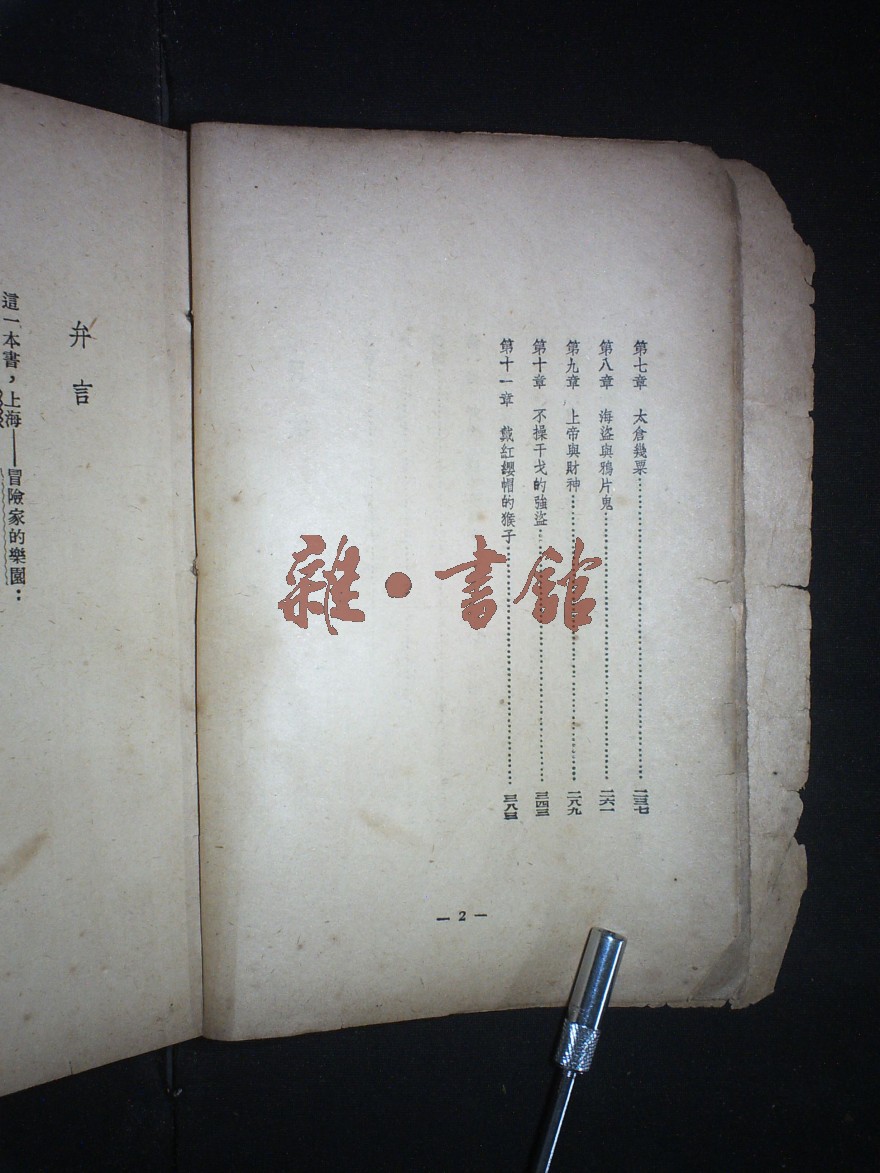 第七章 太倉幾票……二三七
第八章 海盜與鴉片鬼……二六一
第九章 上帝與財神……二八九
第十章 不操干戈的強盜……三四三
第十一章 戴紅纓帽的猴子……三八三
— 2 —
弁言
這一本書，上海——冒險家的樂園：
雜·書館